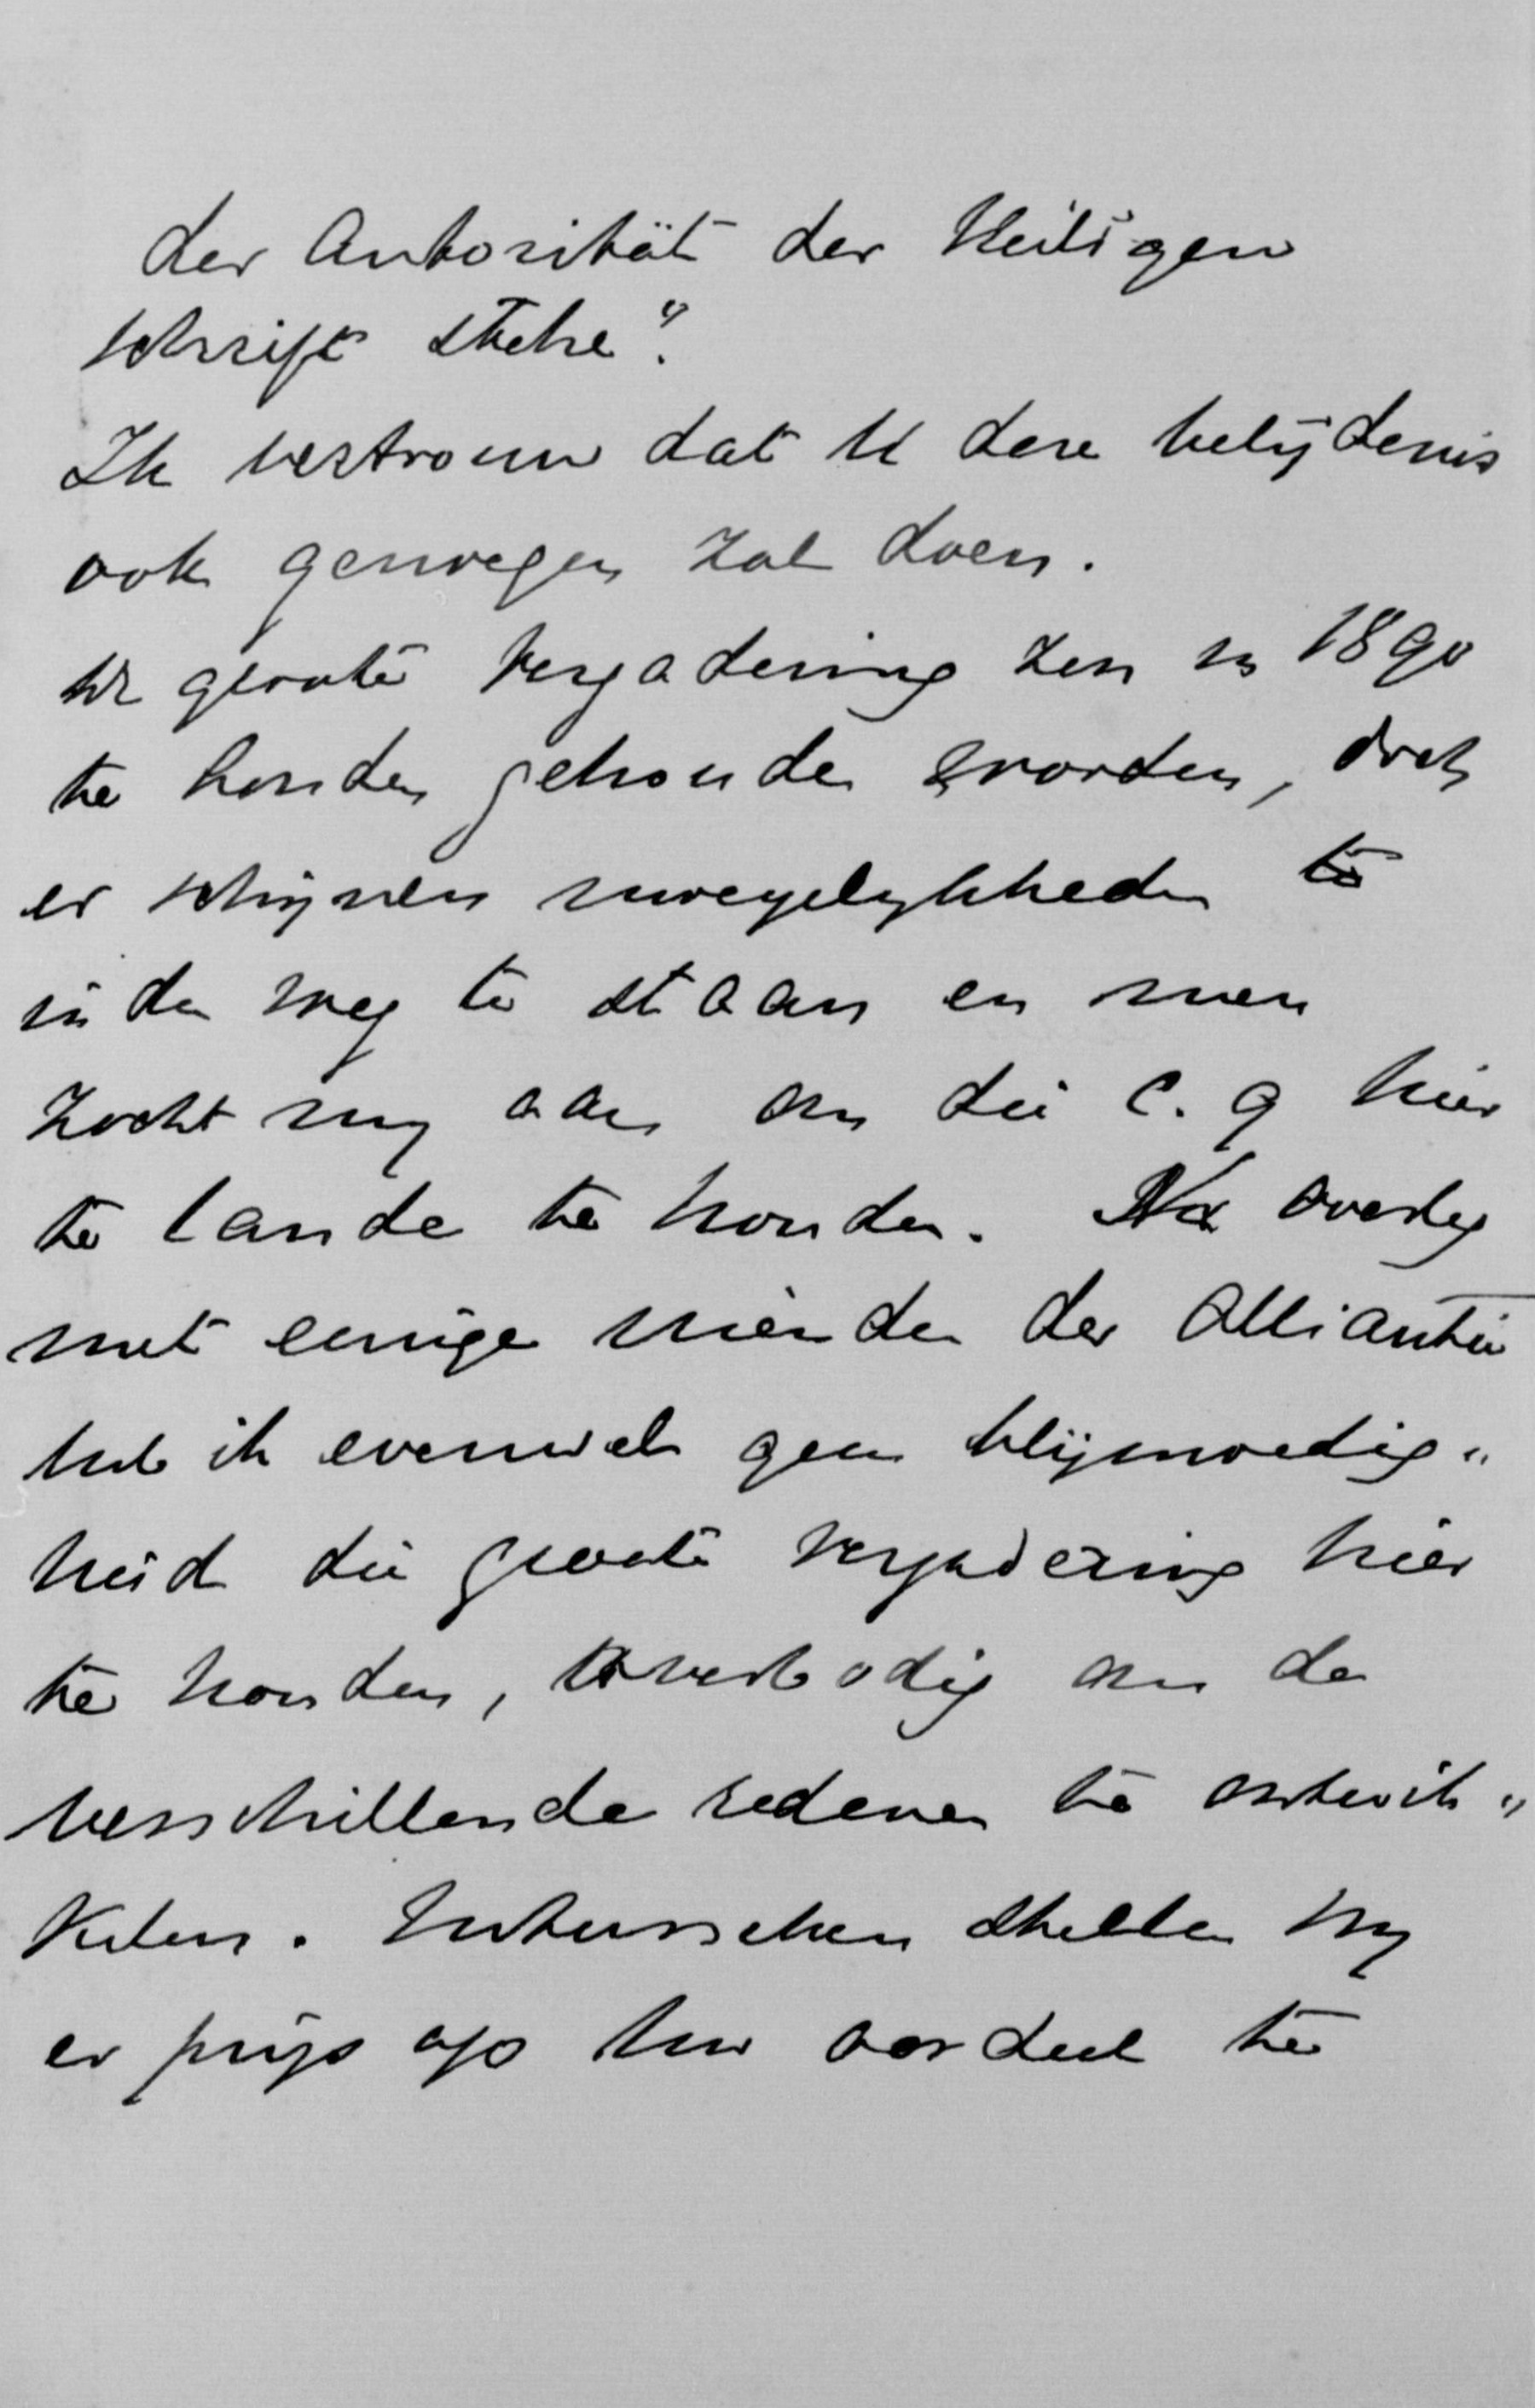 der Autorität der Heiligen
Schrift stehe".
Ik vertrouw dat U deze belijdenis
ook genoegen zal doen.
De groote Vergadering zou in 1890
te houden gehouden worden, doch
er schijnen moeyelykheden te
in den weg te staan en men
zocht my aan om die c. q hier
te lande te houden. Na overleg
met eenige vrienden der Alliantie
heb ik evenwel geen blijmoedig"
heid die groote vergadering hier
te houden, overbodig om de
verschillende redenen te ontwik"
kelen. Intusschen stellen wy
er prijs op Uw oordeel te